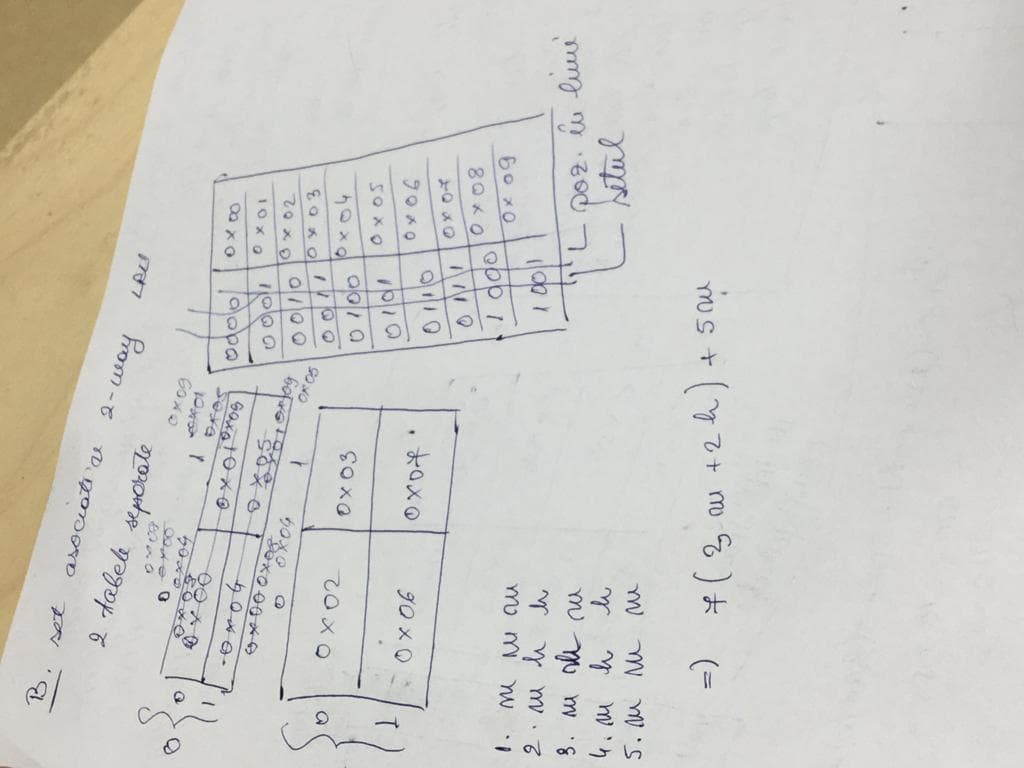 B. set asociative 2-way LRU
2 tabele separate
0x08
0 0x00
0x04
1
0x09
0x01
0x05
0 { 0 0x08
0x00 0x01 0x09
1 0x04 0x05
0x00 0x08 0x01 0x09
0 0x04 1 0x05
{ 0 0x02 0x03
1 0x06 0x07
0000 0x00
0001 0x01
0010 0x02
0011 0x03
0100 0x04
0101 0x05
0110 0x06
0111 0x07
1000 0x08
1001 0x09
poz. în linie
setul
1. m m m
2. m h h
3. m m
4. m h h
5. m m m
=) 7( 3 m + 2 h) + 5 m